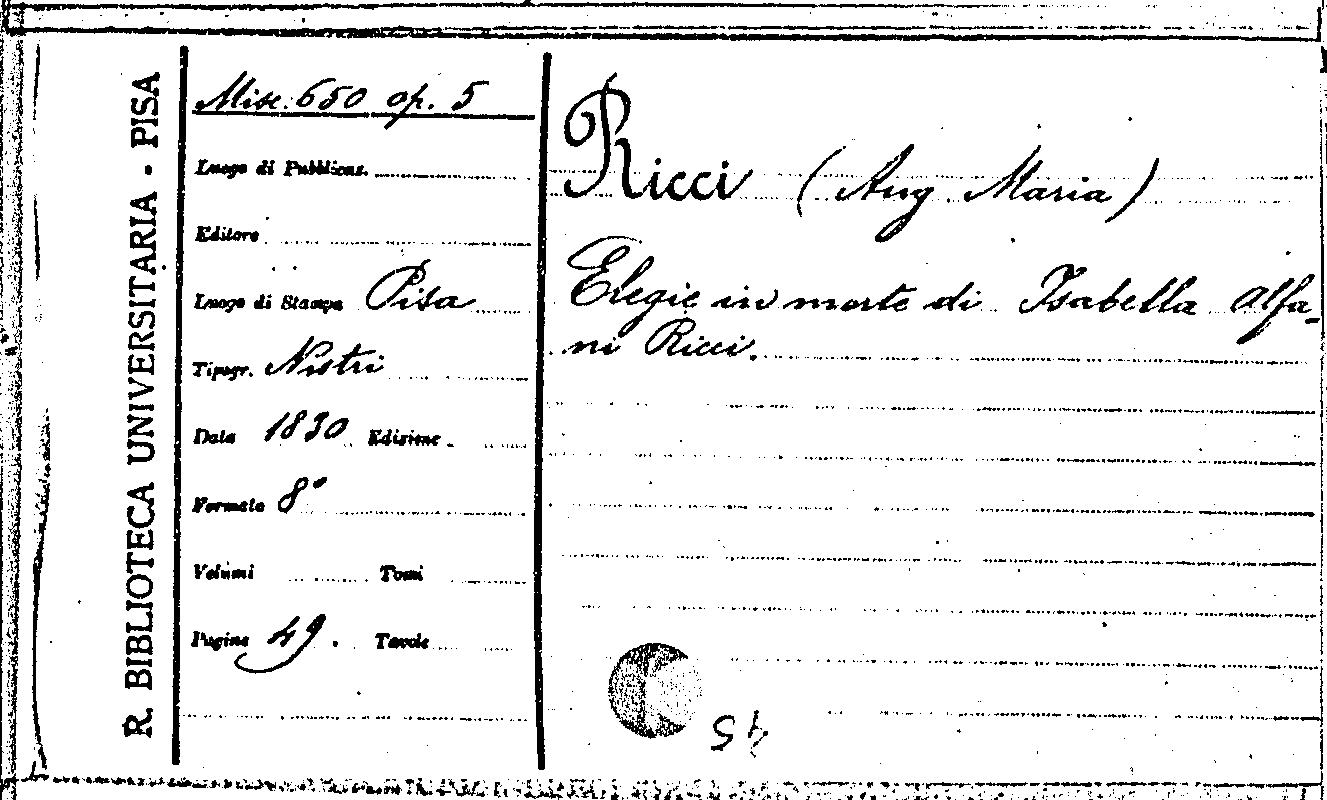 R. BIBLIOTECA UNIVERSITARIA - PISA
Misc. 650 op. 5
Luogo di Pubblicaz.
Editore
Luogo di Stampa Pisa
Tipogr. Nistri
Data 1830 Edizione
Formato 8°
Volumi Tomi
Pagine 49. Tavole
Ricci (Ang. Maria)
Elegie in morte di Isabella Alfa-
ni Ricci.
45